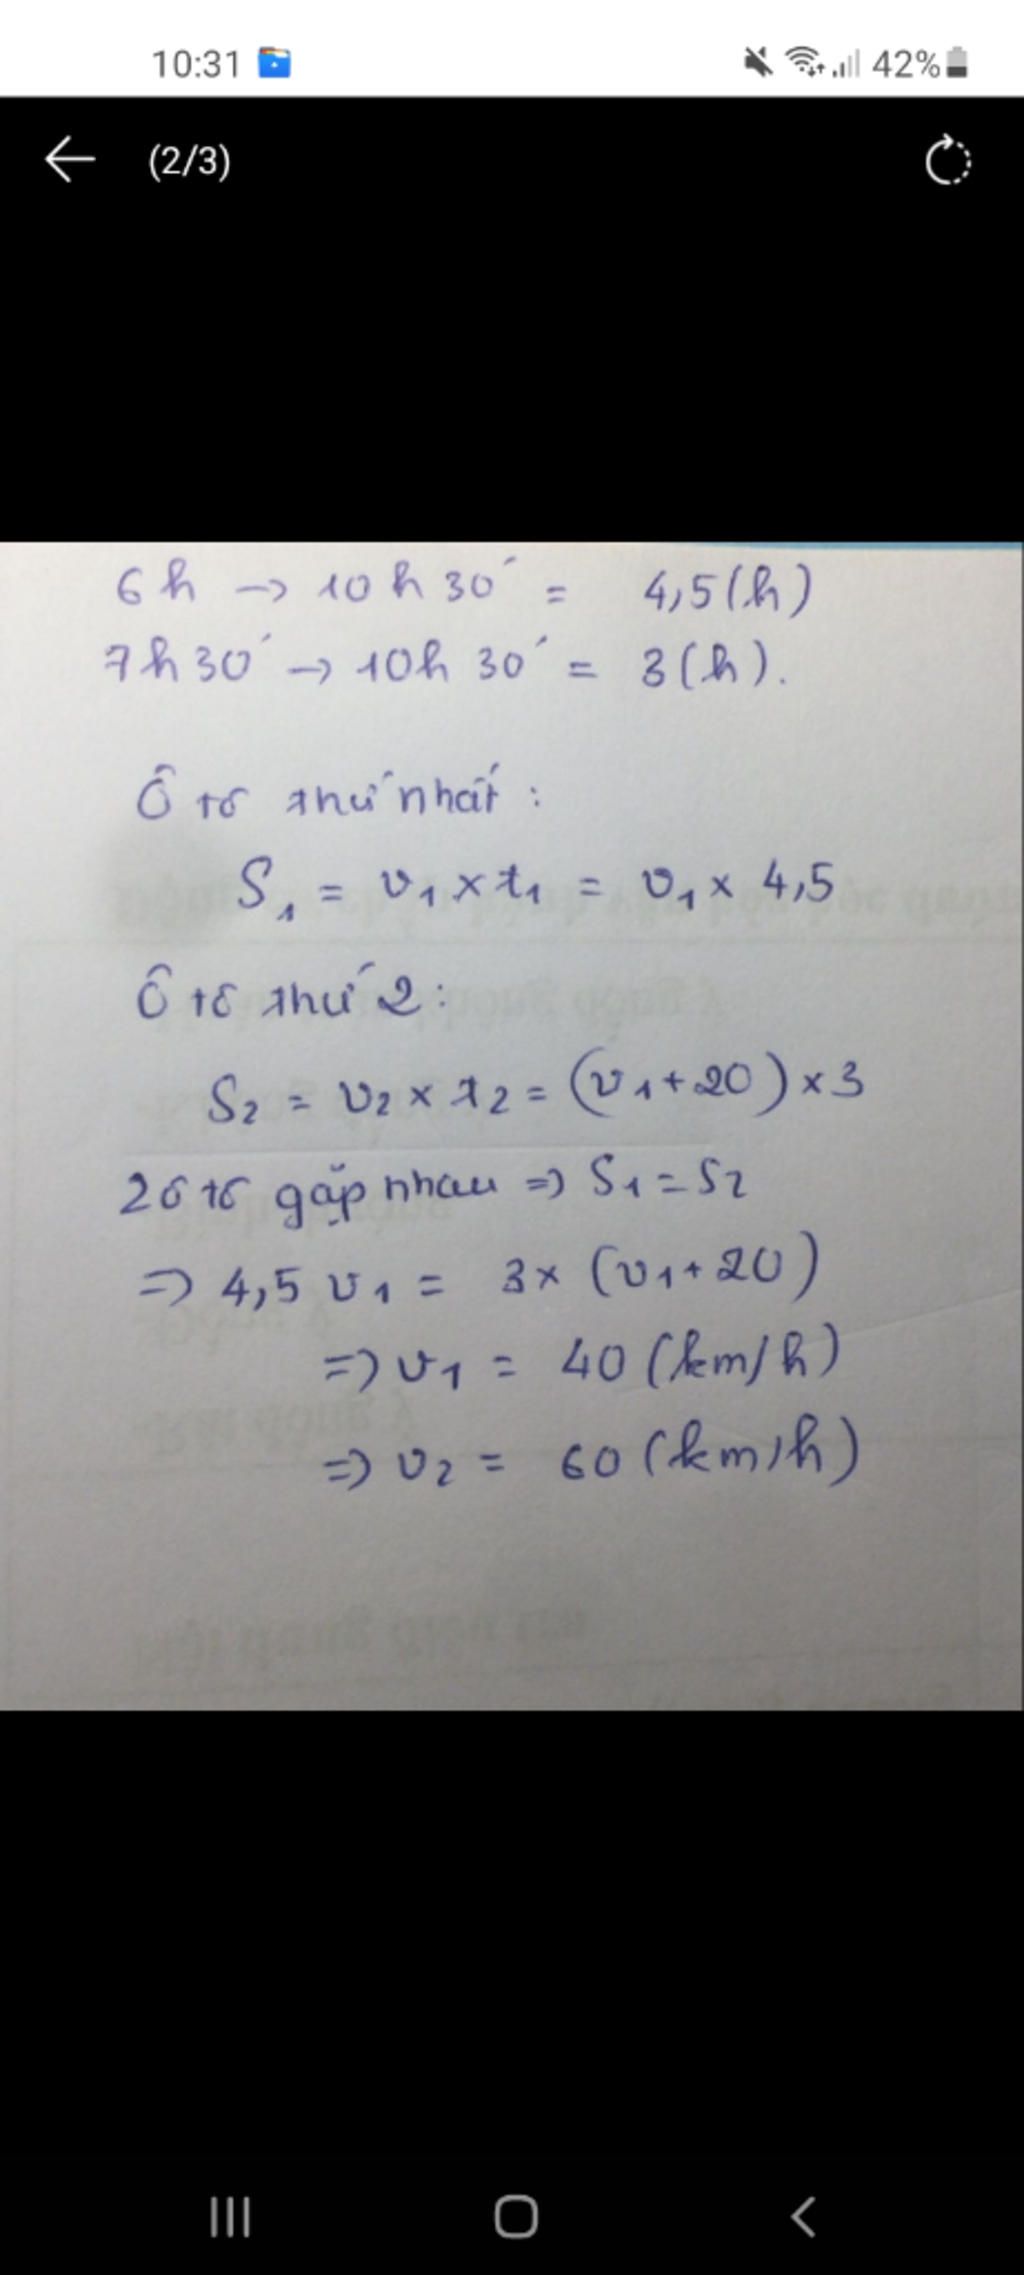 10:31 42%
(2/3)
6h → 10h30' = 4,5(h)
7h30' → 10h30' = 3(h).
Ô tô thứ nhất :
S₁ = v₁ × t₁ = v₁ × 4,5
Ô tô thứ 2 :
S₂ = v₂ × t₂ = (v₁ + 20) × 3
2 ô tô gặp nhau => S₁ = S₂
=> 4,5 v₁ = 3 × (v₁ + 20)
=> v₁ = 40 (km/h)
=> v₂ = 60 (km/h)